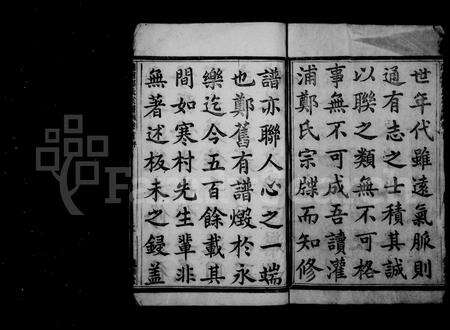 世年代雖遠氣脈則
通有志之士積其誠
以聯之類無不可格
事無不可成吾讀灌
浦鄭氏宗牒而知修
譜亦聯人心之一端
也鄭舊有譜燬於永
樂迄今五百餘載其
間如寒村先生輩非
無著述板未之鋟蓋